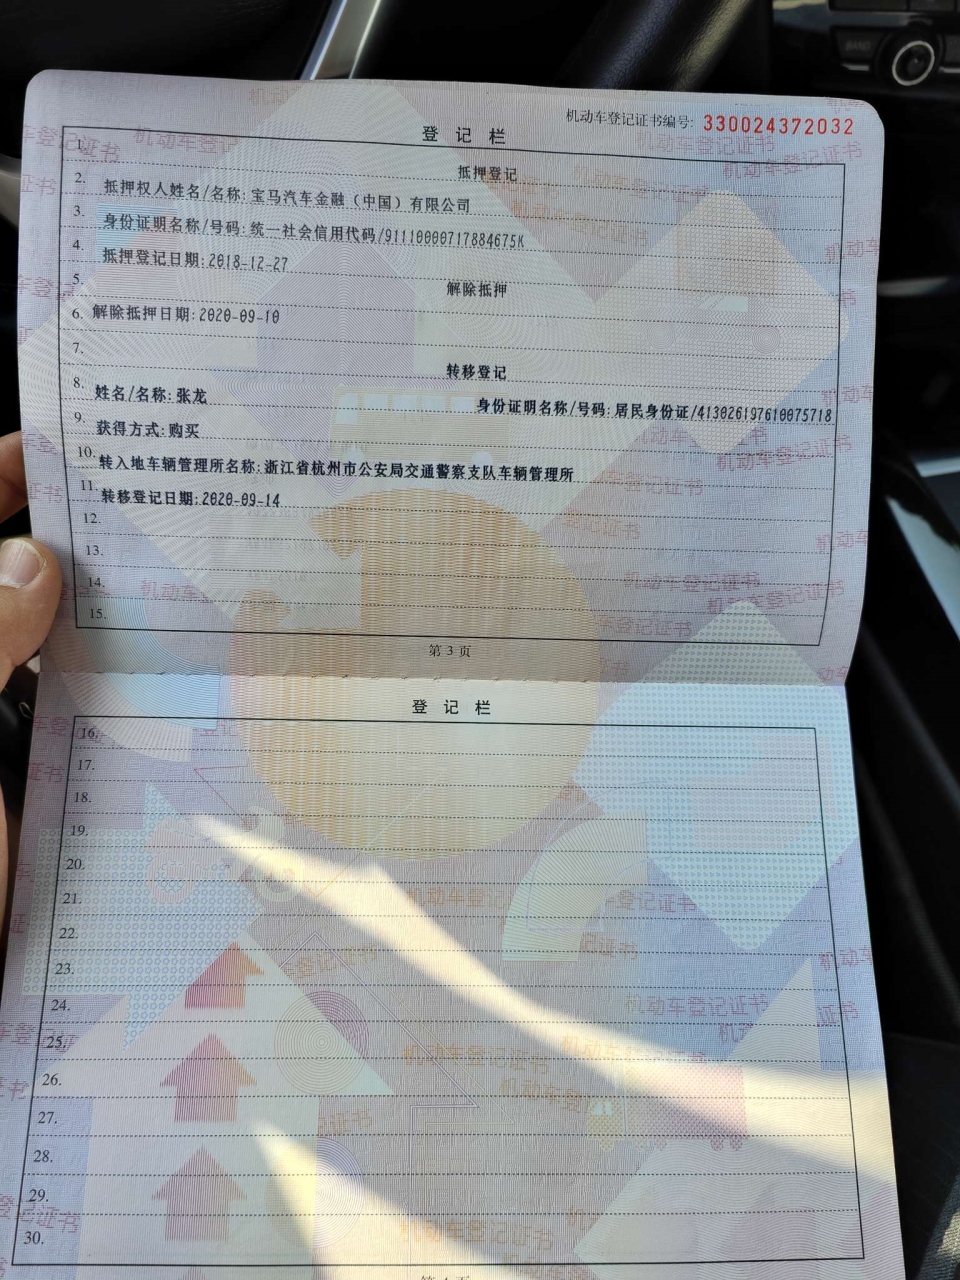 机动车登记证书编号: 330024372032
登 记 栏
1. 抵押登记
2. 抵押权人姓名/名称: 宝马汽车金融（中国）有限公司
3. 身份证明名称/号码: 统一社会信用代码/91110000717884675K
4. 抵押登记日期: 2018-12-27
5. 解除抵押
6. 解除抵押日期: 2020-09-10
7. 转移登记
8. 姓名/名称: 张龙 身份证明名称/号码: 居民身份证/413026197610075718
9. 获得方式: 购买
10. 转入地车辆管理所名称: 浙江省杭州市公安局交通警察支队车辆管理所
11. 转移登记日期: 2020-09-14
12.
13.
14.
15.
第 3 页
登 记 栏
16.
17.
18.
19.
20.
21.
22.
23.
24.
25.
26.
27.
28.
29.
30.